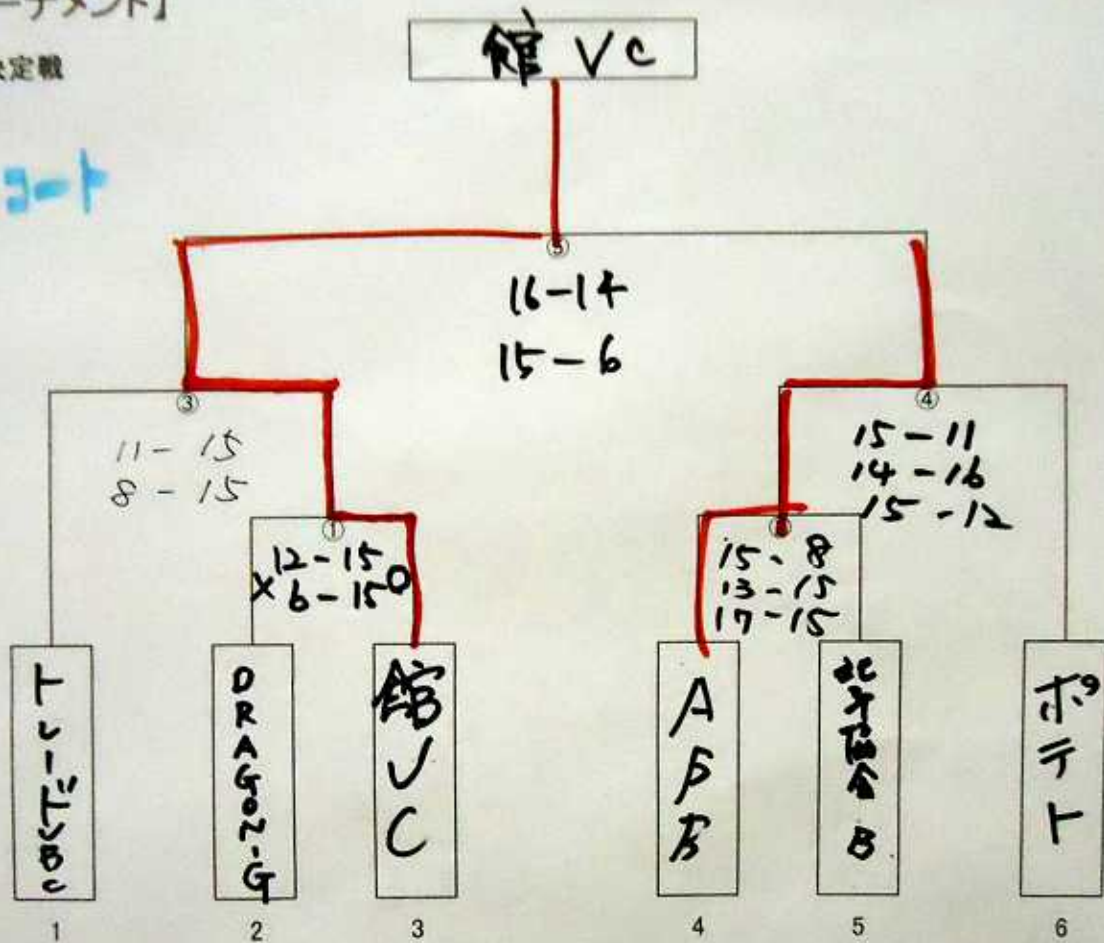 ーナメント】
決定戦
コート
館 VC
⑤
16-14
15-6
③
11-15
8-15
④
15-11
14-16
15-12
①
×12-15
6-15○
15-8
13-15
17-15
DRAGON-G
館VC
ポテト
1
2
3
4
5
6